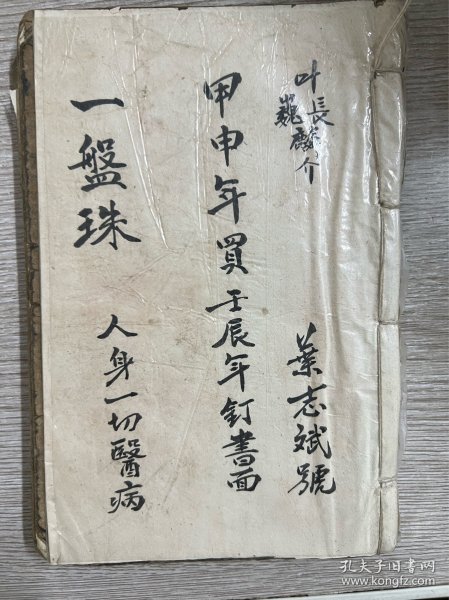 叶長麟
巍 介
葉志斌號
甲申年買壬辰年釘書面
一盤珠
人身一切醫病
孔夫子旧书网
www.kongfz.com